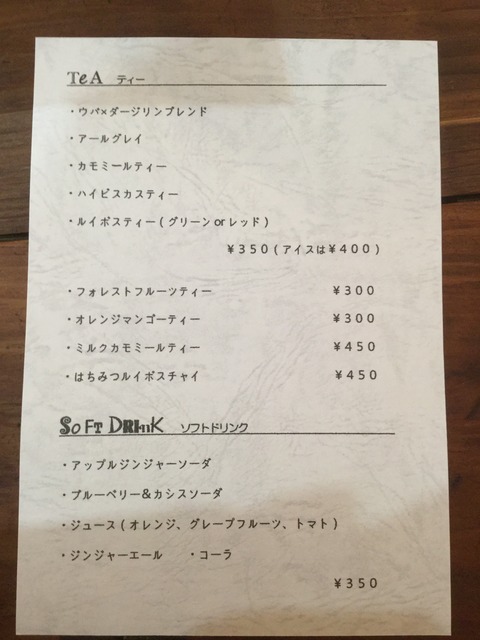 TeA ティー
・ウバ×ダージリンブレンド
・アールグレイ
・カモミールティー
・ハイビスカスティー
・ルイボスティー(グリーンorレッド)
¥350(アイスは¥400)
・フォレストフルーツティー ¥300
・オレンジマンゴーティー ¥300
・ミルクカモミールティー ¥450
・はちみつルイボスチャイ ¥450
SoFT DRInK ソフトドリンク
・アップルジンジャーソーダ
・ブルーベリー&カシスソーダ
・ジュース(オレンジ、グレープフルーツ、トマト)
・ジンジャーエール ・コーラ
¥350